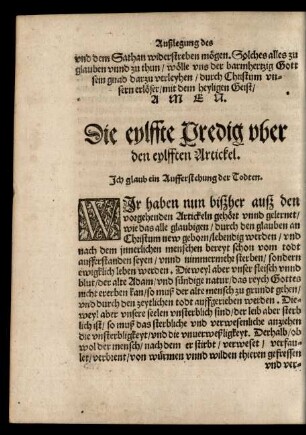 Außlegung des
vnd dem Sathan widerstreben mögen. Solches alles zu
glauben vnnd zu thun / wölle vns der barmhertzig Gott
sein gnad darzu verleyhen / durch Christum vn-
sern erlöser / mit dem heyligen Geist /
A M E N.
Die eylffte Predig vber
den eylfften Artickel.
Ich glaub ein Aufferstehung der Todten.
WIr haben nun bißher auß den
vorgehenden Artickeln gehört vnnd gelernet /
wie das alle glaubigen / durch den glauben an
Christum new geborn / lebendig werden / vnd
nach dem jnnerlichen menschen bereyt schon vom todt
aufferstanden seyen / vnnd nimmermehr sterben / sondern
ewigklich leben werden. Dieweyl aber vnser fleisch vnnd
blut / der alte Adam / vnd sündige natur / das reych Gottes
nicht ererben kan / so muß der alte mensch zu grundt gehen /
vnd durch den zeytlichen todt auffgerieben werden. Die-
weyl aber vnsere seelen vnsterblich sind / der leib aber sterb
lich ist / so muß das sterbliche vnd verwesenliche anzehen
die vnsterbligkeyt / vnd die vnuerweßligkeyt. Derhalb / ob
wol der mensch / nach dem er stirbt / verweset / verfau-
let / verbrent / von würmen vnnd wilden thieren gefressen
vnd ver-